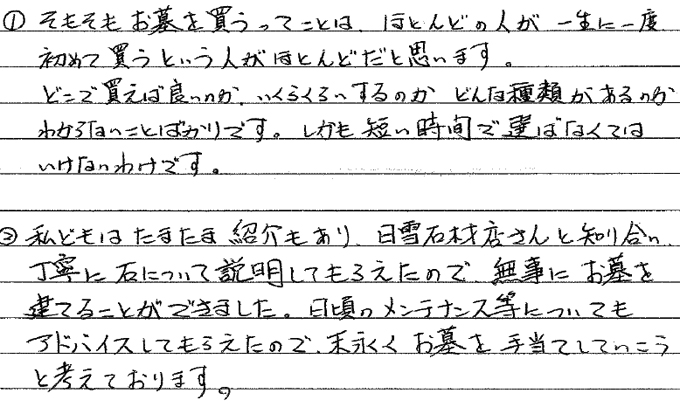 ① そもそもお墓を買うってことは、ほとんどの人が一生に一度
初めて買うという人がほとんどだと思います。
どこで買えば良いのか、いくらくらいするのかどんな種類があるのか
わからないことばかりです。しかも短い時間で選ばなくては
いけないわけです。
② 私どもはたまたま紹介もあり、日雪石材店さんと知り合い、
丁寧に石について説明してもらえたので、無事にお墓を
建てることができました。日頃のメンテナンス等についても
アドバイスしてもらえたので、末永くお墓を手当てしていこう
と考えております。